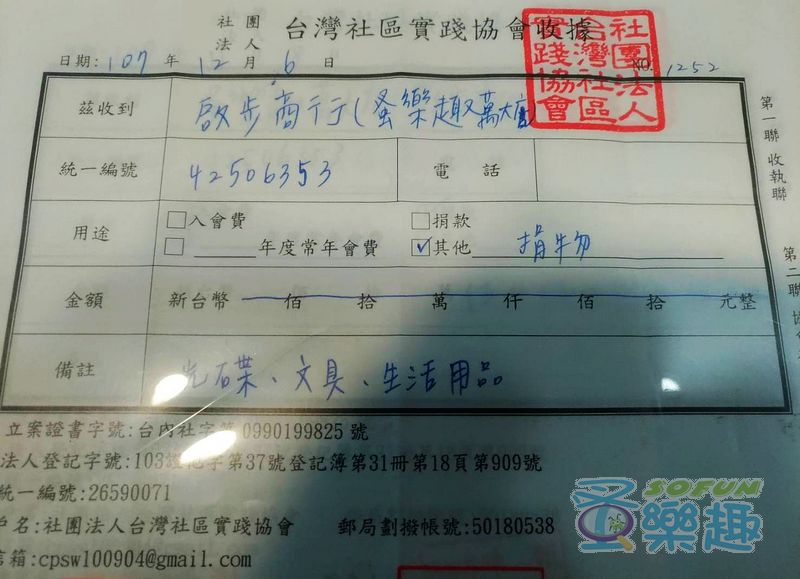 社團法人 台灣社區實踐協會收據
社團法人台灣社區實踐協會
日期: 107 年 12 月 6 日 NO. 1252
茲收到 啟步商行(蚤樂趣萬大店)
統一編號 42506353 電話
用途 □入會費 □捐款
□______年度常年會費 ☑其他 捐物
金額 新台幣 佰 拾 萬 仟 佰 拾 元整
備註 光碟、文具、生活用品
第一聯 收執聯
第二聯
立案證書字號:台內社字第 0990199825 號
法人登記字號:103證他字第37號登記簿第31冊第18頁第909號
統一編號:26590071
戶名:社團法人台灣社區實踐協會 郵局劃撥帳號:50180538
信箱:cpsw100904@gmail.com
SOFUN
蚤樂趣